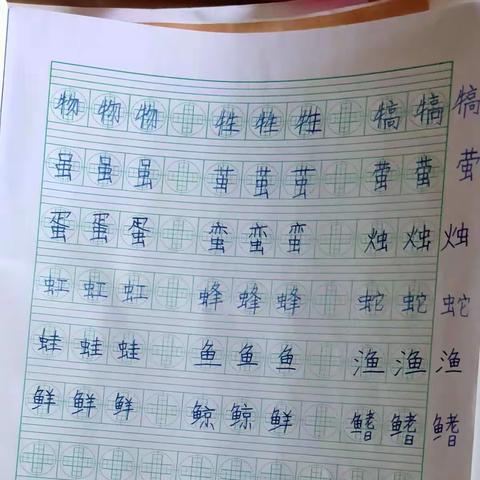 物物物 牲牲牲 犒犒犒
虽虽虽 茧茧茧 萤萤萤
蛋蛋蛋 蛮蛮蛮 烛烛烛
虹虹虹 蜂蜂蜂 蛇蛇蛇
蛙蛙蛙 鱼鱼鱼 渔渔渔
鲜鲜鲜 鲸鲸鲜 鳍鳍鳍